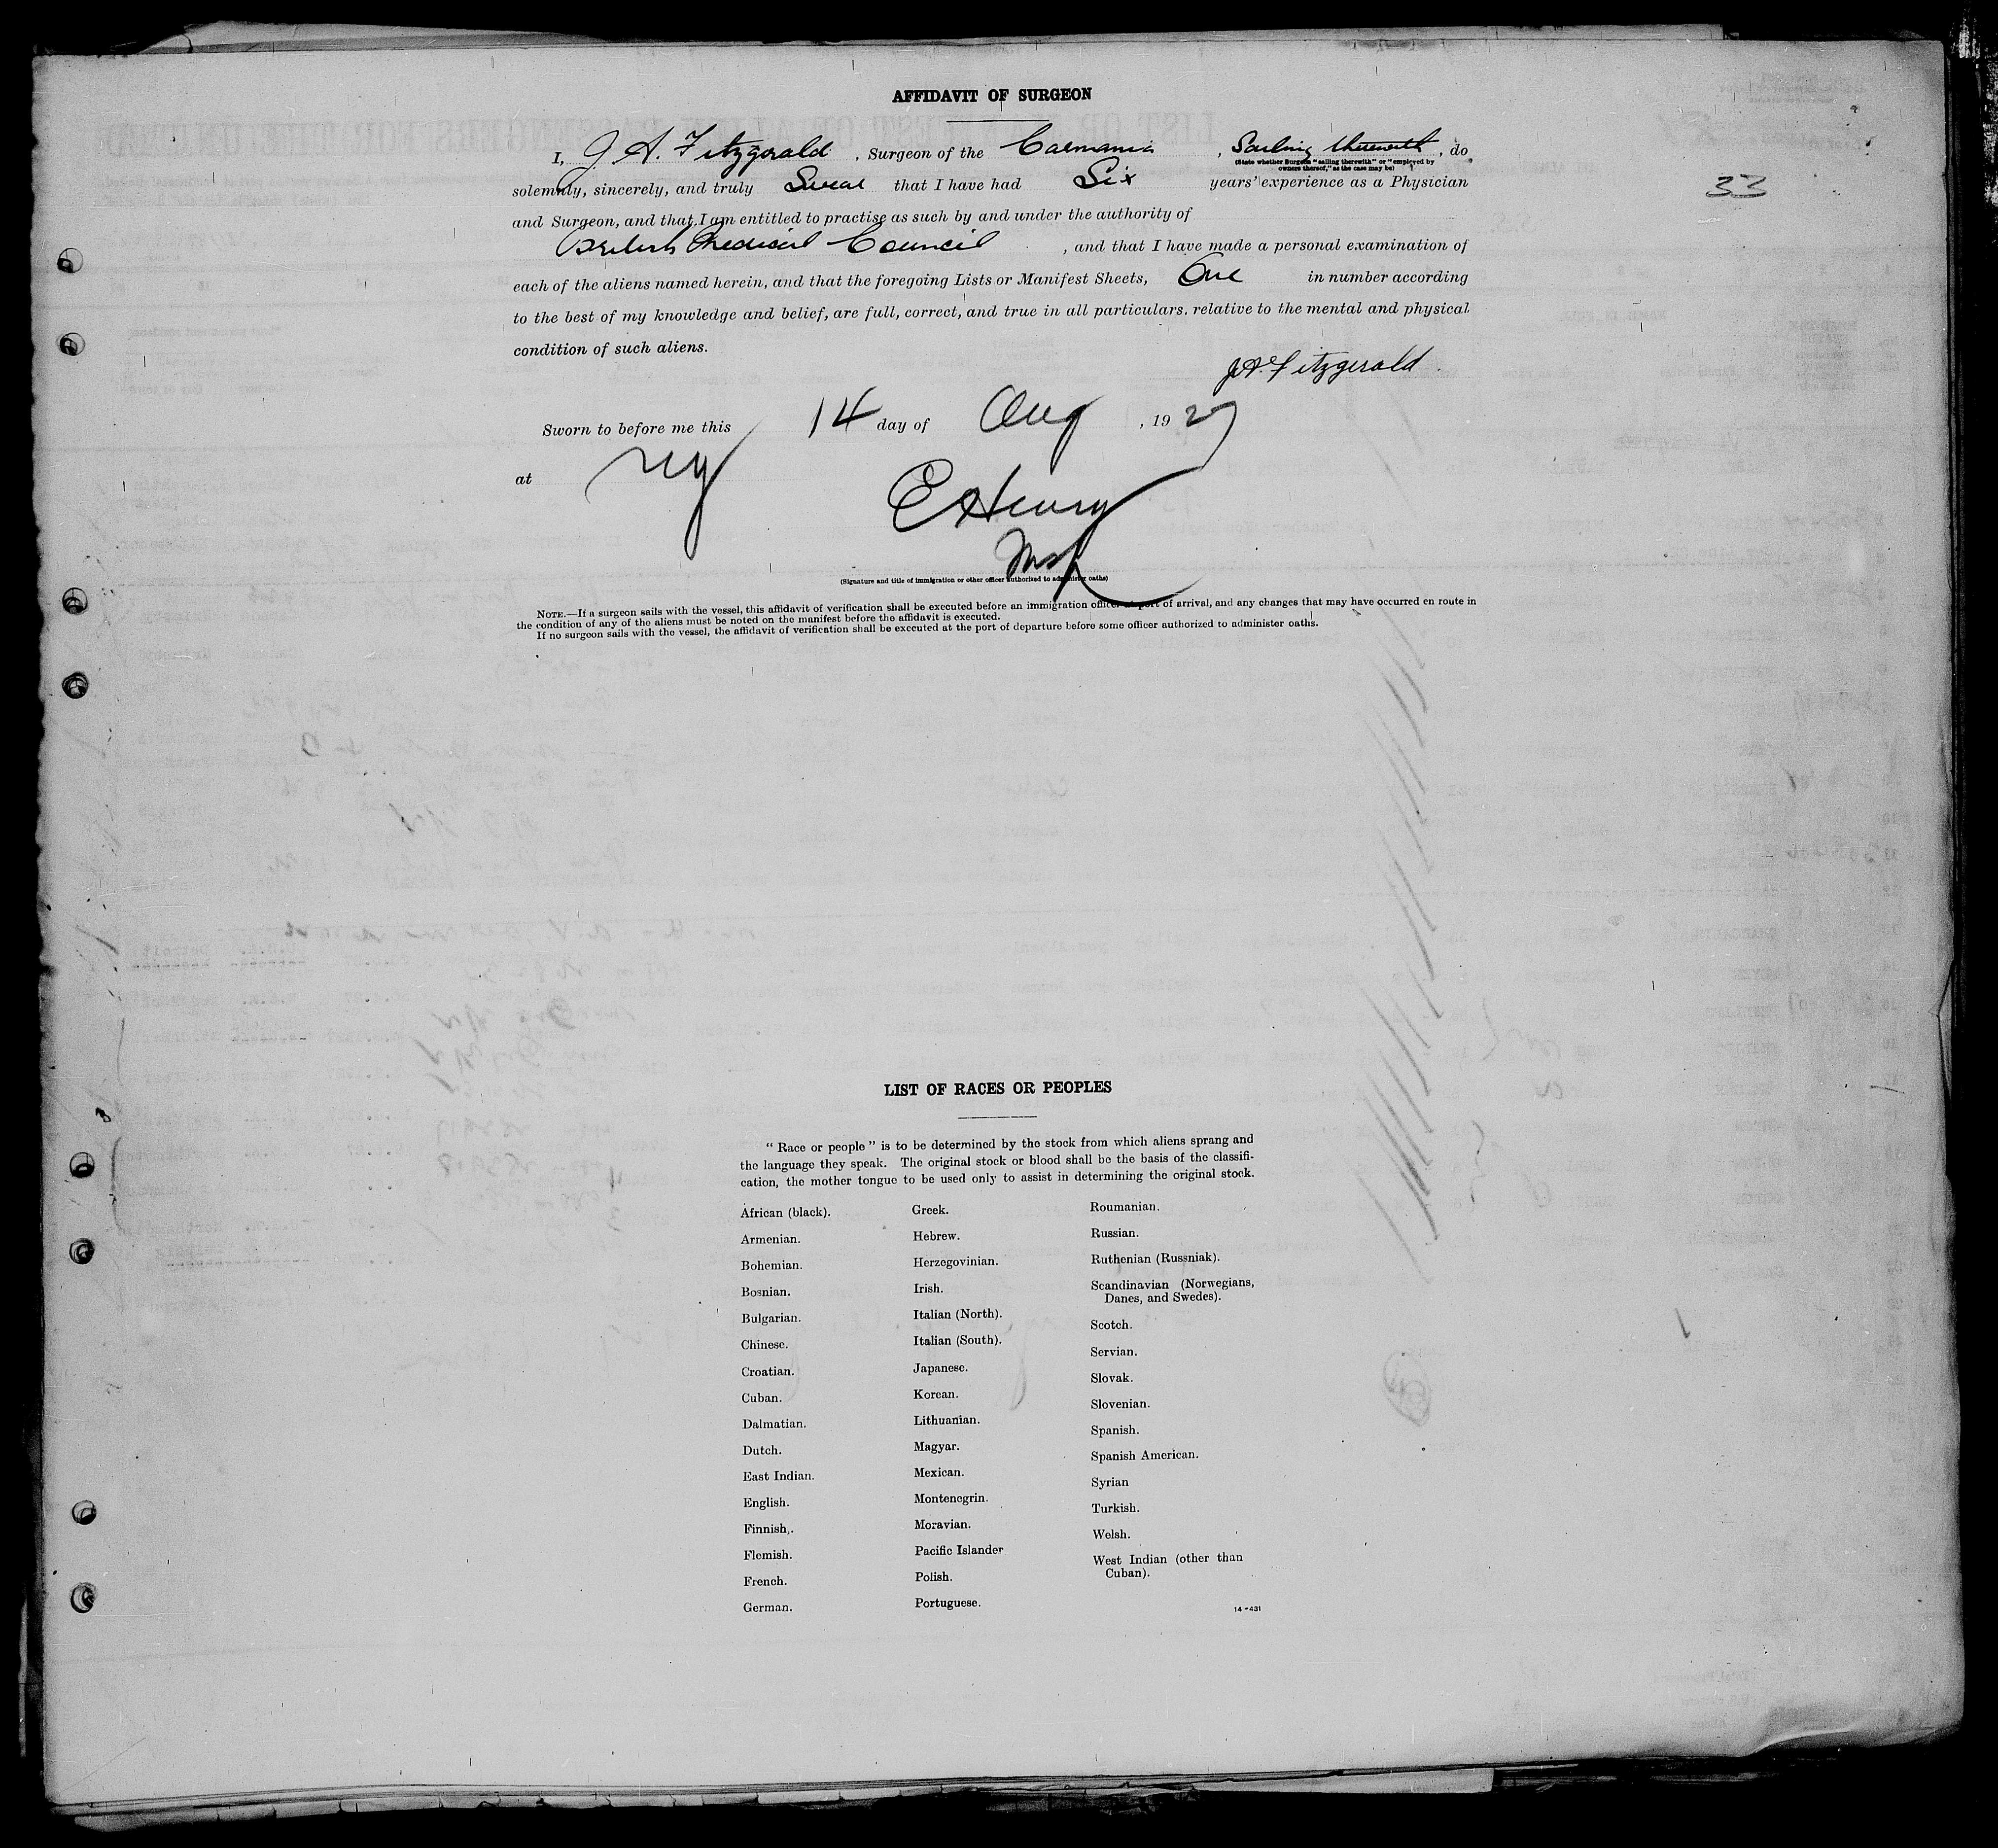 AFFIDAVIT OF SURGEON
I, J. A. Fitzgerald, Surgeon of the Carmania, Sailing therewith, do
(State whether Surgeon "sailing therewith" or "employed by
owners thereof," as the case may be)
solemnly, sincerely, and truly Swear that I have had Six years' experience as a Physician
33
and Surgeon, and that I am entitled to practise as such by and under the authority of
British Medical Council, and that I have made a personal examination of
each of the aliens named herein, and that the foregoing Lists or Manifest Sheets, One in number according
to the best of my knowledge and belief, are full, correct, and true in all particulars, relative to the mental and physical
condition of such aliens.
J.A. Fitzgerald.
Sworn to before me this 14 day of Aug, 1927
at NY
E Henry
(Signature and title of immigration or other officer authorized to administer oaths)
NOTE.—If a surgeon sails with the vessel, this affidavit of verification shall be executed before an immigration officer at port of arrival, and any changes that may have occurred en route in
the condition of any of the aliens must be noted on the manifest before the affidavit is executed.
If no surgeon sails with the vessel, the affidavit of verification shall be executed at the port of departure before some officer authorized to administer oaths.
LIST OF RACES OR PEOPLES
"Race or people" is to be determined by the stock from which aliens sprang and
the language they speak. The original stock or blood shall be the basis of the classifi-
cation, the mother tongue to be used only to assist in determining the original stock.
African (black).
Armenian.
Bohemian.
Bosnian.
Bulgarian.
Chinese.
Croatian.
Cuban.
Dalmatian.
Dutch.
East Indian.
English.
Finnish.
Flemish.
French.
German.
Greek.
Hebrew.
Herzegovinian.
Irish.
Italian (North).
Italian (South).
Japanese.
Korean.
Lithuanian.
Magyar.
Mexican.
Montenegrin.
Moravian.
Pacific Islander
Polish.
Portuguese.
Roumanian.
Russian.
Ruthenian (Russniak).
Scandinavian (Norwegians,
Danes, and Swedes).
Scotch.
Servian.
Slovak.
Slovenian.
Spanish.
Spanish American.
Syrian
Turkish.
Welsh.
West Indian (other than
Cuban).
14-431